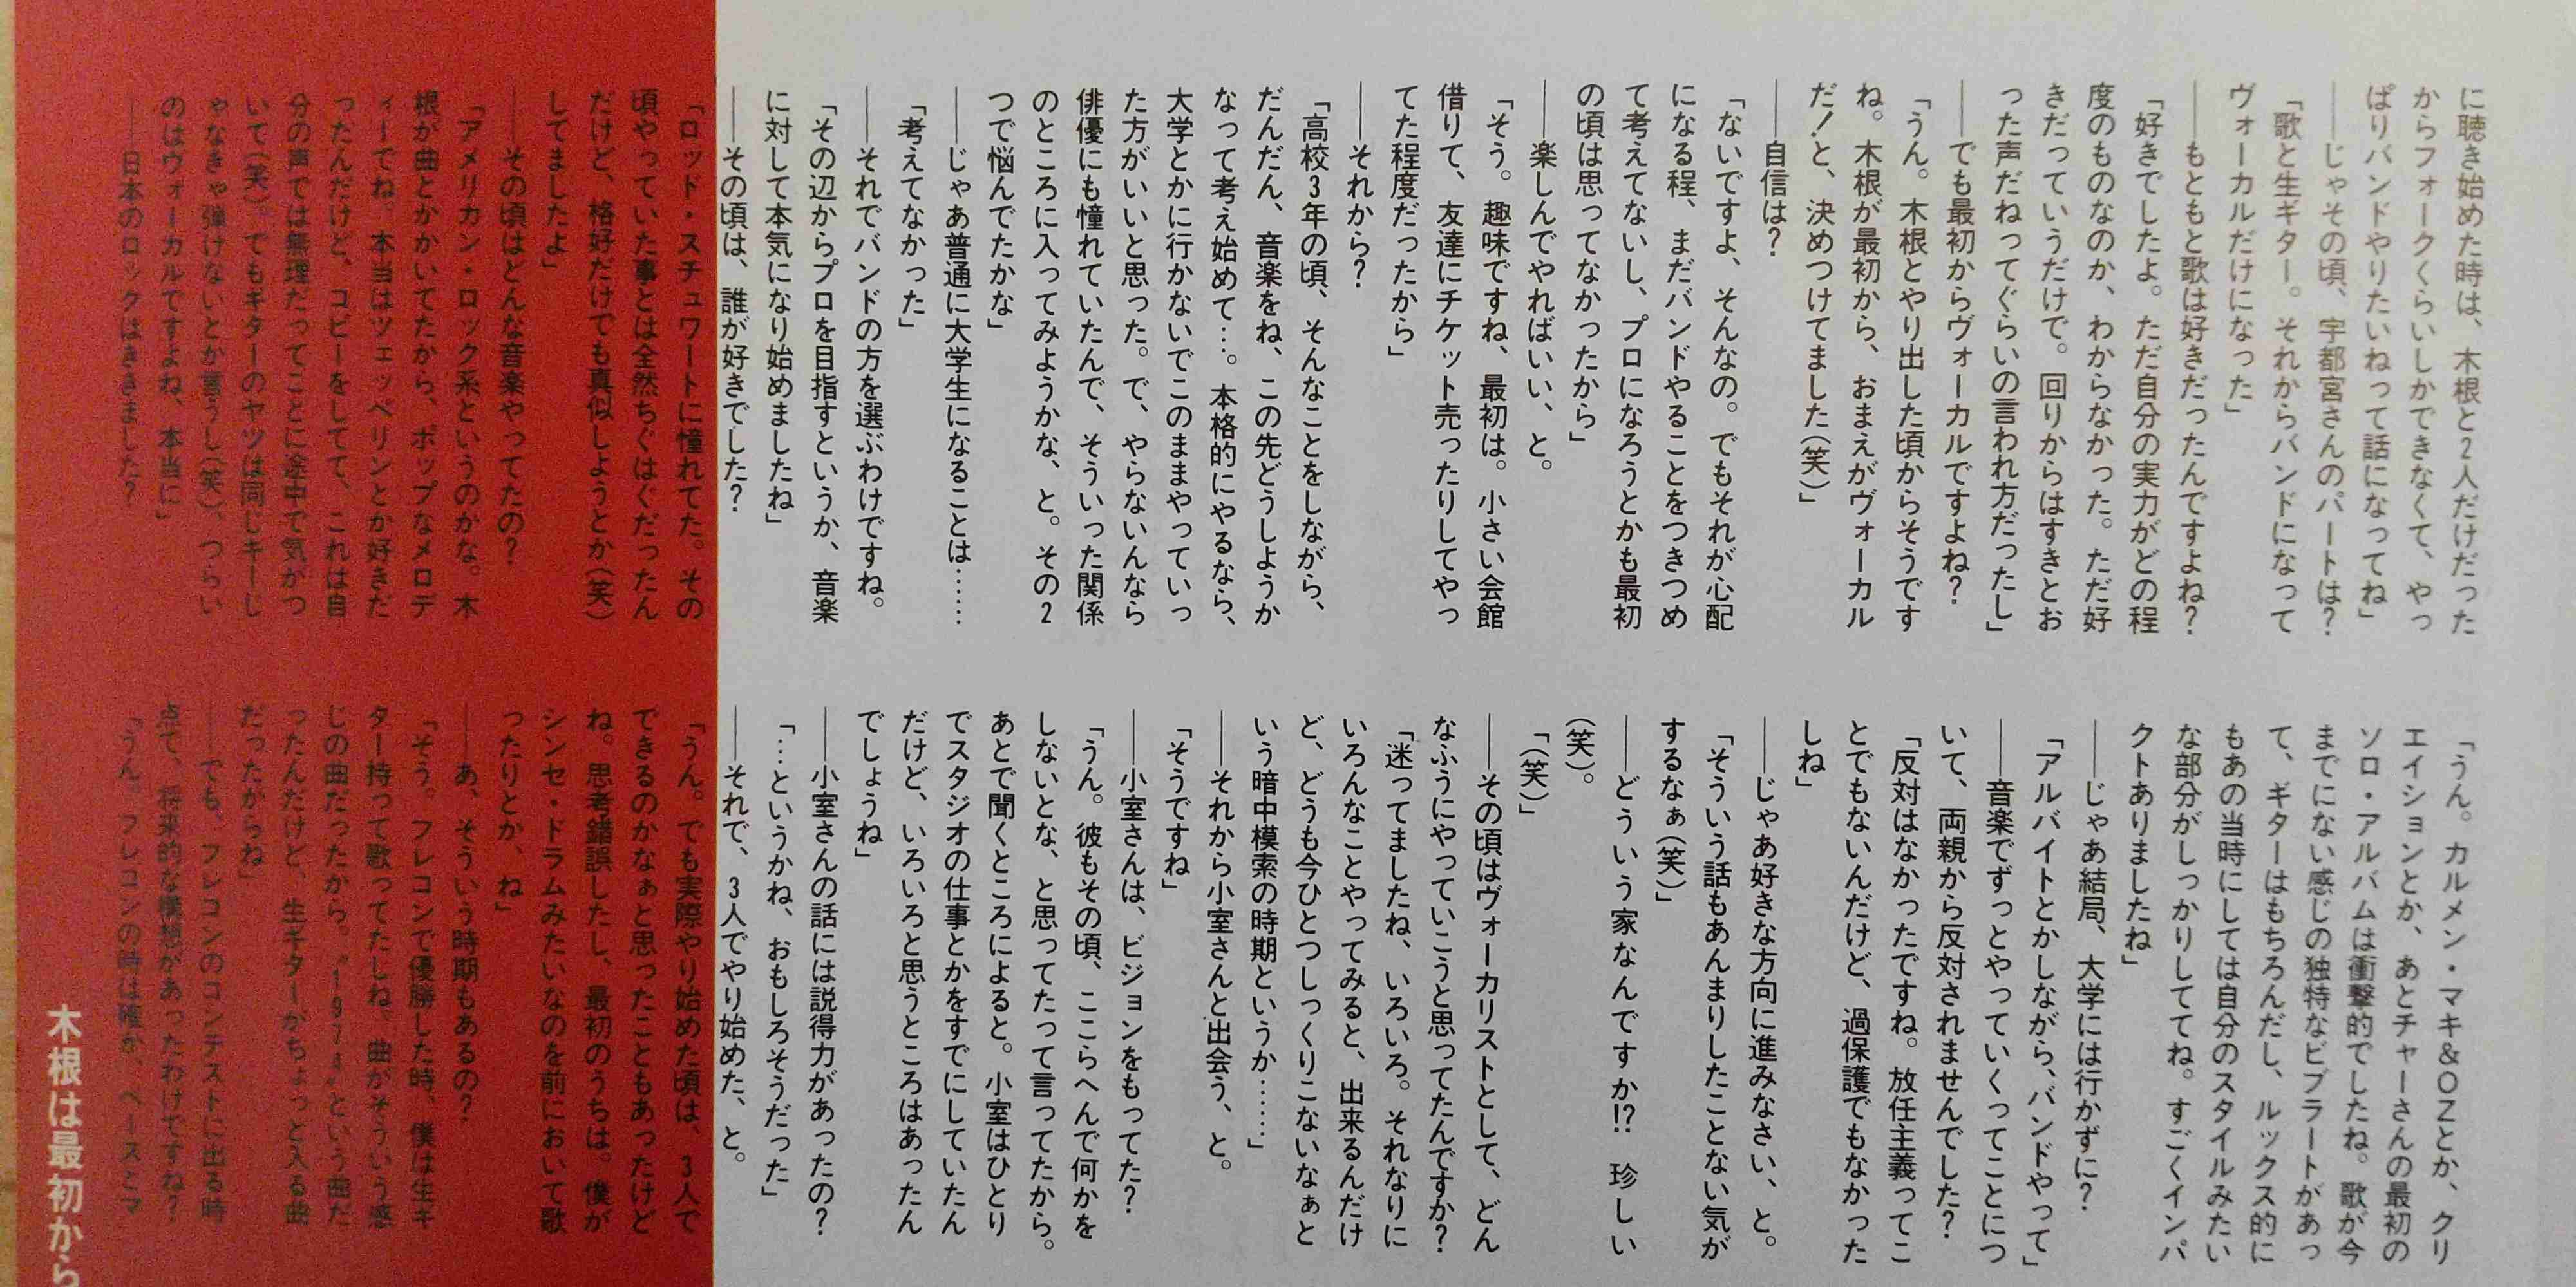 に聴き始めた時は、木根と2人だけだった
からフォークくらいしかできなくて、やっ
ぱりバンドやりたいねって話になってね」
――じゃその頃、宇都宮さんのパートは?
「歌と生ギター。それからバンドになって
ヴォーカルだけになった」
――もともと歌は好きだったんですよね?
「好きでしたよ。ただ自分の実力がどの程
度のものなのか、わからなかった。ただ好
きだっていうだけで。回りからはすきとお
った声だねってぐらいの言われ方だったし」
――でも最初からヴォーカルですよね?
「うん。木根とやり出した頃からそうです
ね。木根が最初から、おまえがヴォーカル
だ!と、決めつけてました(笑)」
――自信は?
「ないですよ、そんなの。でもそれが心配
になる程、まだバンドやることをつきつめ
て考えてないし、プロになろうとかも最初
の頃は思ってなかったから」
――楽しんでやればいい、と。
「そう。趣味ですね、最初は。小さい会館
借りて、友達にチケット売ったりしてやっ
てた程度だったから」
――それから?
「高校3年の頃、そんなことをしながら、
だんだん、音楽をね、この先どうしようか
なって考え始めて…。本格的にやるなら、
大学とかに行かないでこのままやっていっ
た方がいいと思った。で、やらないんなら
俳優にも憧れていたんで、そういった関係
のところに入ってみようかな、と。その2
つで悩んでたかな」
――じゃあ普通に大学生になることは……
「考えてなかった」
――それでバンドの方を選ぶわけですね。
「その辺からプロを目指すというか、音楽
に対して本気になり始めましたね」
――その頃は、誰が好きでした?
「ロッド・スチュワートに憧れてた。その
頃やっていた事とは全然ちぐはぐだったん
だけど、格好だけでも真似しようとか(笑)
してましたよ」
――その頃はどんな音楽やってたの?
「アメリカン・ロック系というのかな。木
根が曲とかかいてたから、ポップなメロデ
ィーでね。本当はツェッペリンとか好きだ
ったんだけど、コピーをしてて、これは自
分の声では無理だってことに途中で気がつ
いて(笑)。でもギターのヤツは同じキーじ
ゃなきゃ弾けないとか言うし(笑)、つらい
のはヴォーカルですよね、本当に」
――日本のロックはききました?
「うん。カルメン・マキ&OZとか、クリ
エイションとか、あとチャーさんの最初の
ソロ・アルバムは衝撃的でしたね。歌が今
までにない感じの独特なビブラートがあっ
て、ギターはもちろんだし、ルックス的に
もあの当時にしては自分のスタイルみたい
な部分がしっかりしててね。すごくインパ
クトありましたね」
――じゃあ結局、大学には行かずに?
「アルバイトとかしながら、バンドやって」
――音楽でずっとやっていくってことにつ
いて、両親から反対されませんでした?
「反対はなかったですね。放任主義ってこ
とでもないんだけど、過保護でもなかった
しね」
――じゃあ好きな方向に進みなさい、と。
「そういう話もあんまりしたことない気が
するなぁ(笑)」
――どういう家なんですか!? 珍しい
(笑)。
「(笑)」
――その頃はヴォーカリストとして、どん
なふうにやっていこうと思ってたんですか?
「迷ってましたね、いろいろ。それなりに
いろんなことやってみると、出来るんだけ
ど、どうも今ひとつしっくりこないなぁと
いう暗中模索の時期というか……」
――それから小室さんと出会う、と。
「そうですね」
――小室さんは、ビジョンをもってた?
「うん。彼もその頃、ここらへんで何かを
しないとな、と思ってたって言ってたから。
あとで聞くところによると。小室はひとり
でスタジオの仕事とかをすでにしていたん
だけど、いろいろと思うところはあったん
でしょうね」
――小室さんの話には説得力があったの?
「…というかね、おもしろそうだった」
――それで、3人でやり始めた、と。
「うん。でも実際やり始めた頃は、3人で
できるのかなぁと思ったこともあったけど
ね。思考錯誤したし、最初のうちは。僕が
シンセ・ドラムみたいなのを前において歌
ったりとか、ね」
――あ、そういう時期もあるの?
「そう。フレコンで優勝した時、僕は生ギ
ター持って歌ってたしね。曲がそういう感
じの曲だったから。“1974”という曲だ
ったんだけど、生ギターがちょっと入る曲
だったからね」
――でも、フレコンのコンテストに出る時
点で、将来的な構想があったわけですね?
「うん。フレコンの時は確か、ベースとマ
木根は最初から